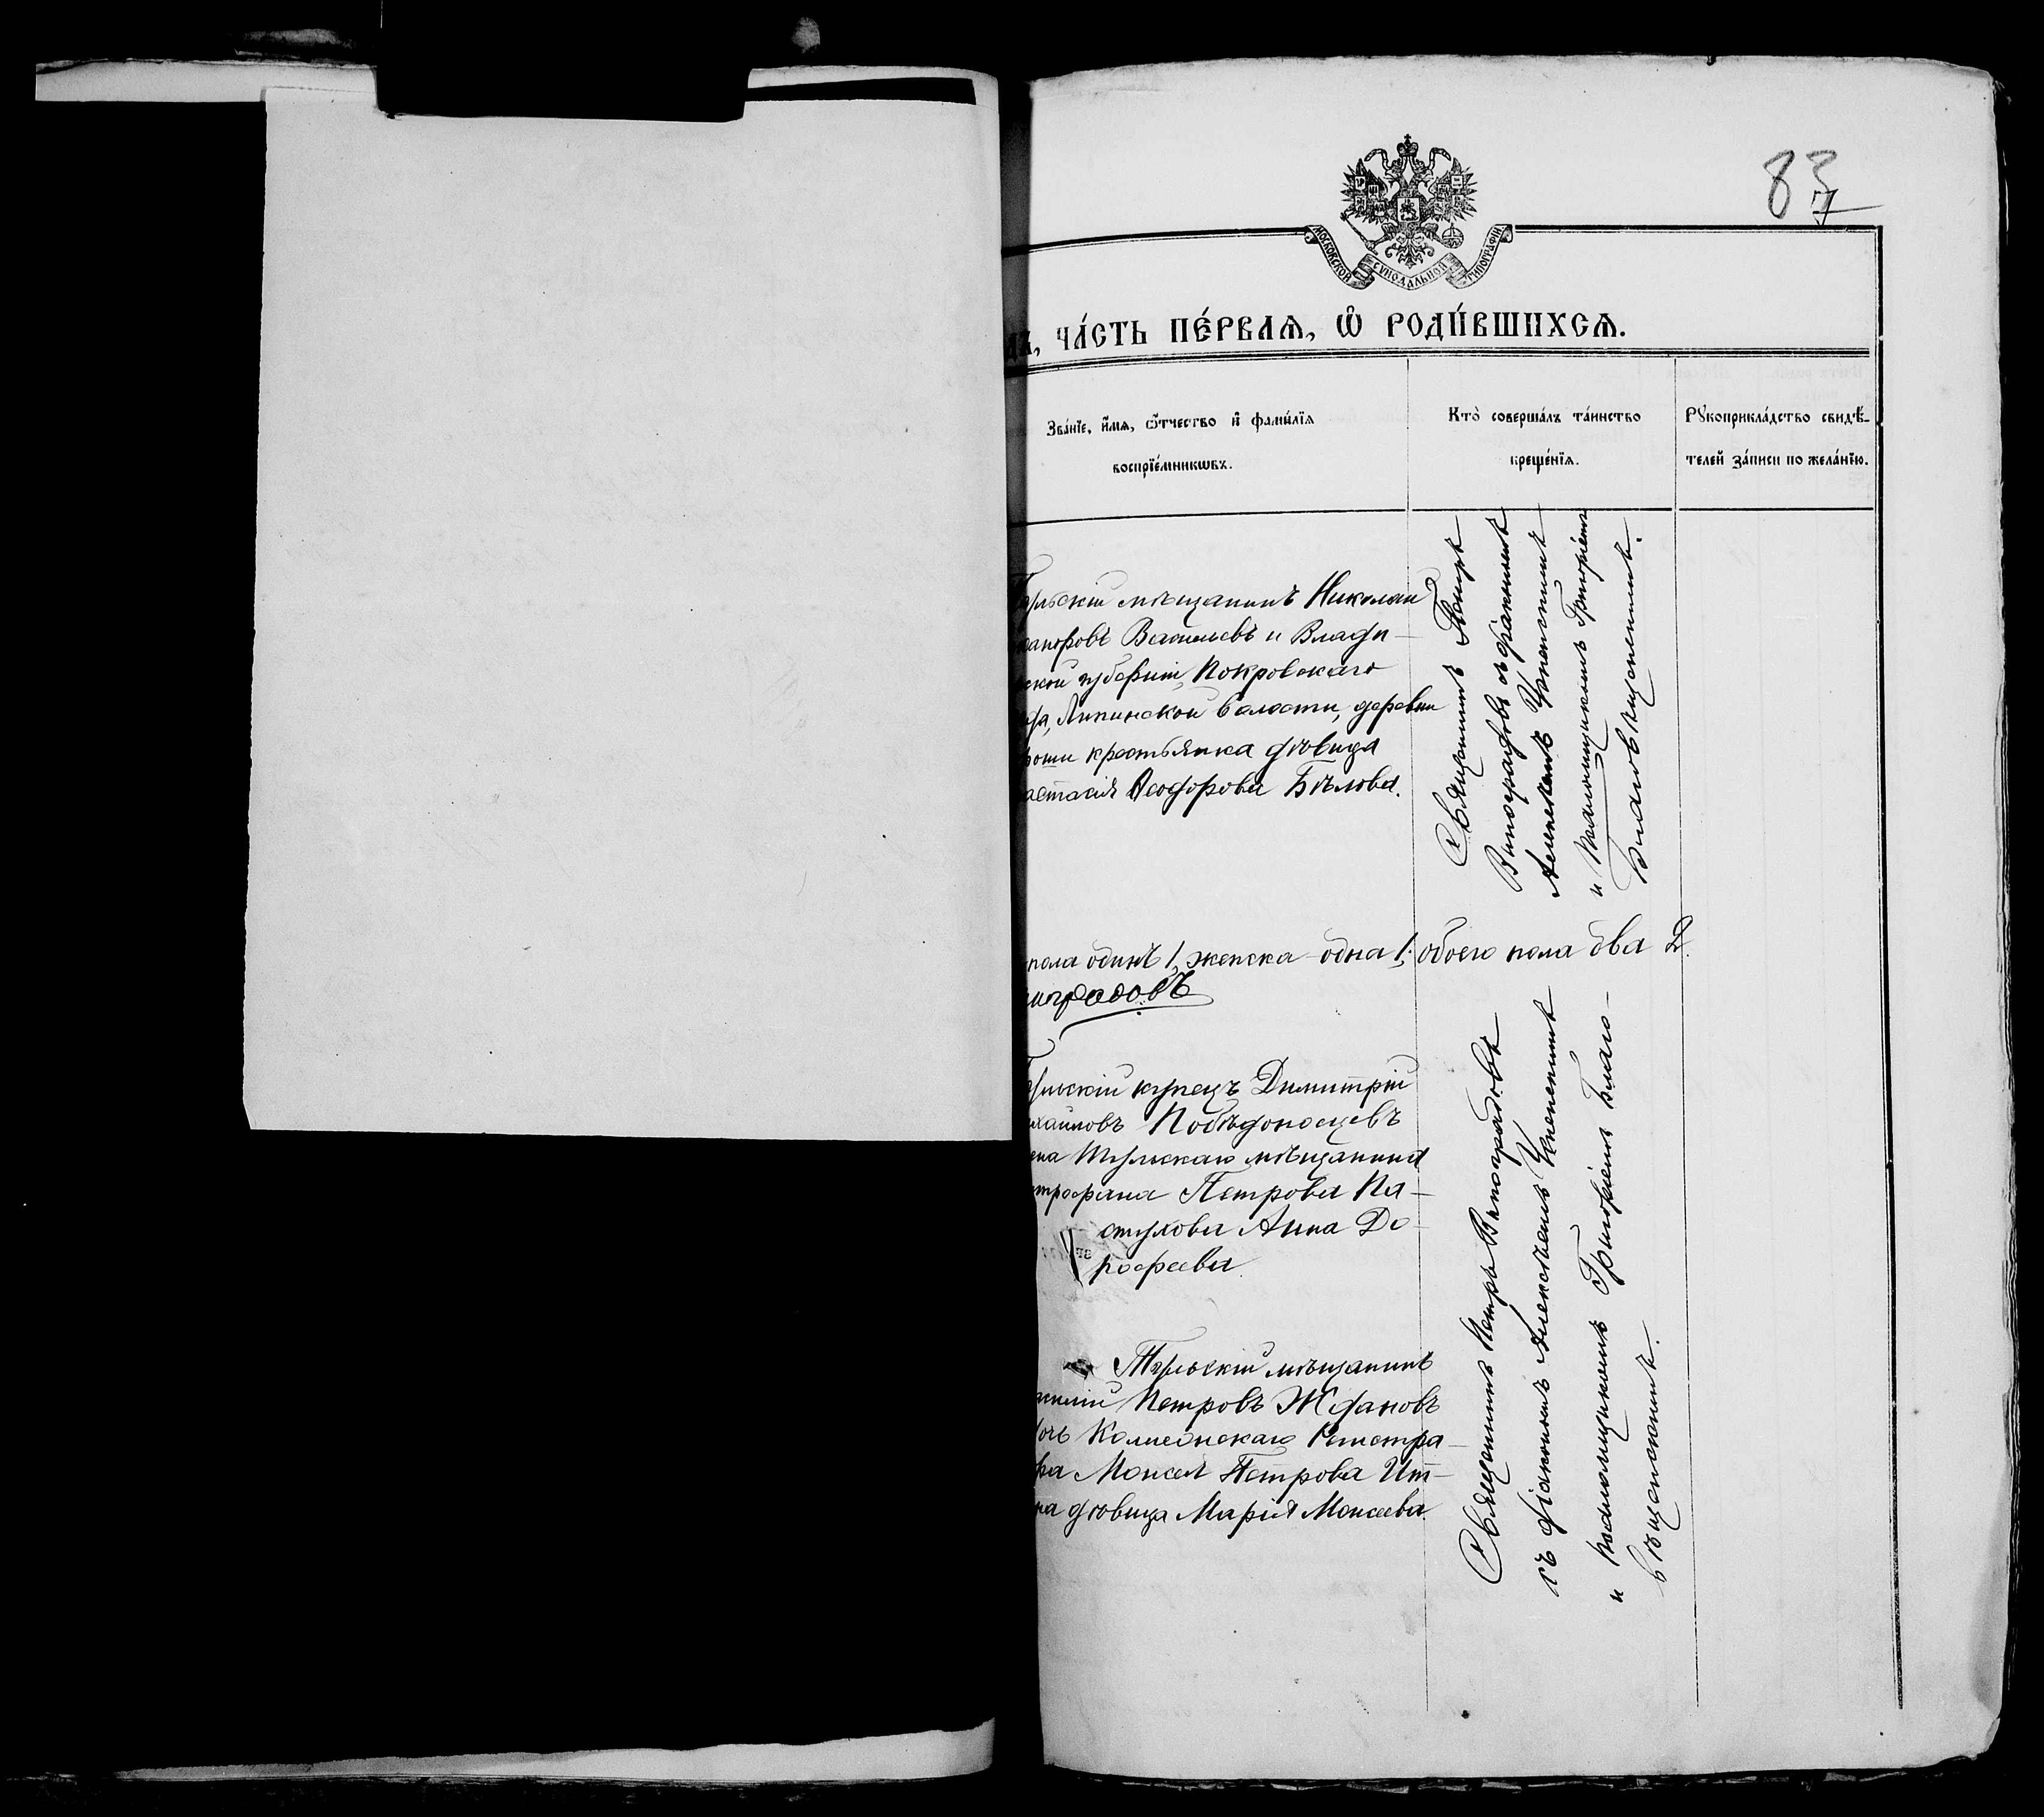 83
7
МОСКОВСКОЙ СѴНОДАЛЬНОЙ ТИПОГРАФІИ
ЧА́СТЬ ПЕ́РВАѦ, Ѡ҆ РОДИ́ВШИХСѦ.
Зва́нїе, и҆́мѧ, ѻ҆́тчество и҆ фами́лїѧ
воспрїе́мникѡвъ.
Кто̀ соверша́лъ та́инство
креще́нїѧ.
Рꙋкоприкла́дство свидѣ́-
телей за́писи по жела́нїю.
ульскій мѣщанинъ Николай
Васильевъ и Влади-
ской губерніи, Покровскаго
да, Липинской волости, деревни
крестьянка дѣвица
астасія Ѳеодорова Бѣлова.
Священникъ Петръ
Виноградовъ съ діакономъ
Алексѣемъ Успенскимъ
и псаломщикомъ Григоріемъ
Благовѣщенскимъ.
пола одинъ 1, женска - одна 1, обоего пола два 2.
иноградовъ
ульскій купецъ Димитрій
хайловъ Побѣдоносцевъ
ена Тульскаго мѣщанина
трофана Петрова Па-
стухова Анна До-
рофеева.
Тульскій мѣщанинъ
асилій Петровъ Ждановъ
дочь Коллежскаго Регистра-
ра Моисея Петрова Ит-
на дѣвица Марія Моисеева.
Священникъ Петръ Виноградовъ
съ діакономъ Алексѣемъ Успенскимъ
и псаломщикомъ Григоріемъ Благо-
вѣщенскимъ.